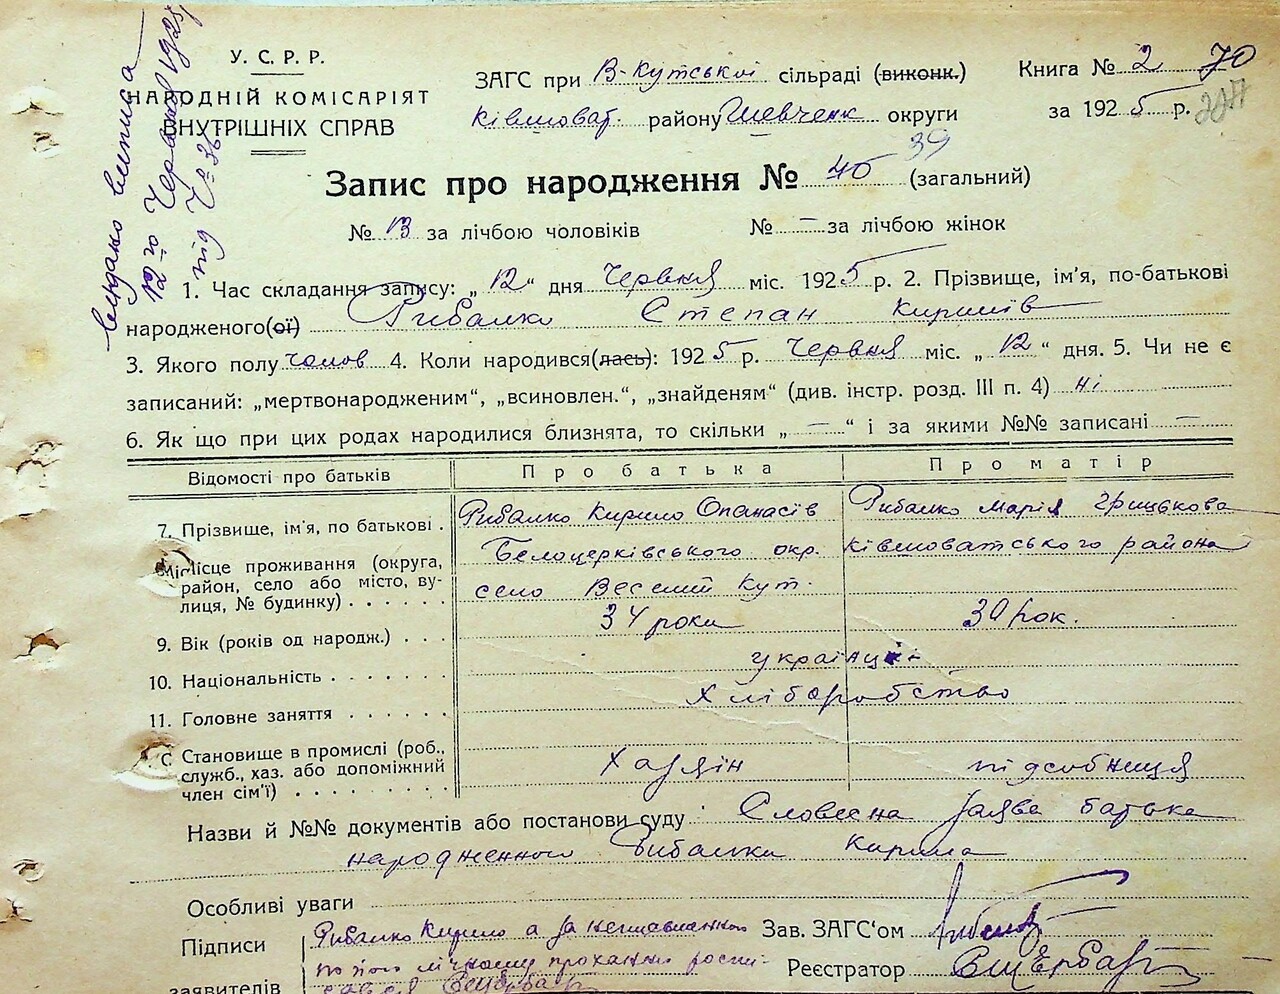 У. С. Р. Р.
НАРОДНІЙ КОМІСАРІЯТ
ВНУТРІШНІХ СПРАВ
видано виписа
12-го Червня 1925
під № 36
ЗАГС при В-Кутській сільраді (виконк.)
району Шевченк округи
Книга № 2 70
за 1925 р.
Запис про народження № 40 39 (загальний)
№ 13 за лічбою чоловіків № — за лічбою жінок
1. Час складання запису: „ 12 “ дня Червня міс. 1925 р. 2. Прізвище, ім’я, по-батькові
народженого(ої) Рибалко Степан Кирилів
3. Якого полу чолов 4. Коли народився(лась): 1925 р. Червня міс. „ 12 “ дня. 5. Чи не є
записаний: „мертвонародженим“, „всиновлен.“, „знайденям“ (див. інстр. розд. III п. 4) ні
6. Як що при цих родах народилися близнята, то скільки „ — “ і за якими №№ записані —
Відомості про батьків Про батька Про матір
7. Прізвище, ім’я, по батькові . Рибалко Кирило Опанасів Рибалко Марія Грицькова
Місце проживання (округа, Белоцерківського окр. ківшоватського района
район, село або місто, ву-
лиця, № будинку) . . . . . . село Веселий Кут.
9. Вік (років од народж.) . . . 34 роки 30 рок.
10. Національність . . . . . . .
11. Головне заняття . . . . . . Хліборобство
Становище в промислі (роб.,
служб., хаз. або допоміжний Хазяїн підсобниця
член сім’ї) . . . . . . . . .
Назви й №№ документів або постанови суду Словесна заява батька
народженного Рибалки Кирила
Особливі уваги
Підписи Рибалко Кирило а за неписьменного Зав. ЗАГС’ом
по його лічному проханню роспи-
заявителів
Реєстратор